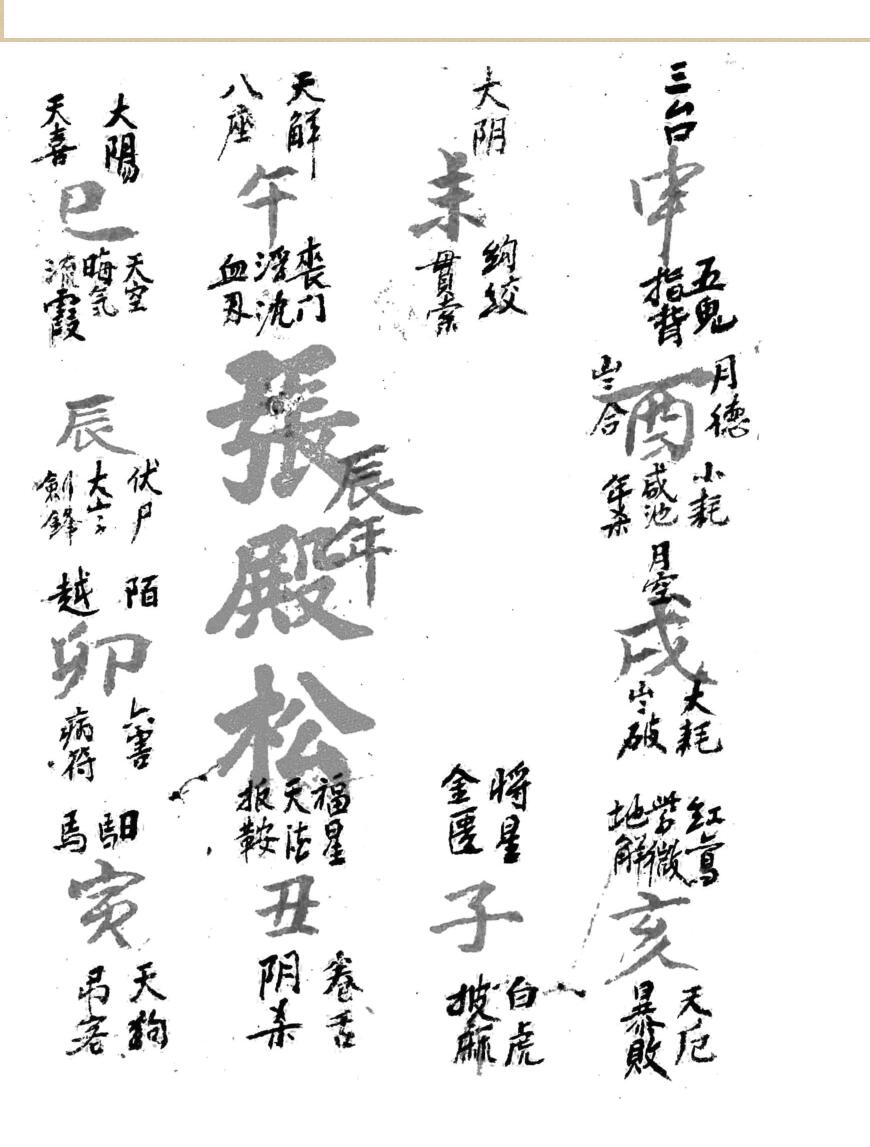 大陽
天喜
巳
天空
晦气
流霞
天解
八座
午
喪门
浮沈
血刃
大阴
未
絇絞
貫索
三台
申
五鬼
指背
月德
岁合
酉
小耗
咸池
年杀
月空
戌
大耗
岁破
紅鸾
紫微
地解
亥
天厄
暴敗
將星
金匱
子
白虎
披麻
福星
天德
扳鞍
丑
卷舌
阴杀
馹
馬
寅
天狗
吊客
陌
越
卯
六害
病符
辰
伏尸
大岁
劍鋒
張殿松
辰年